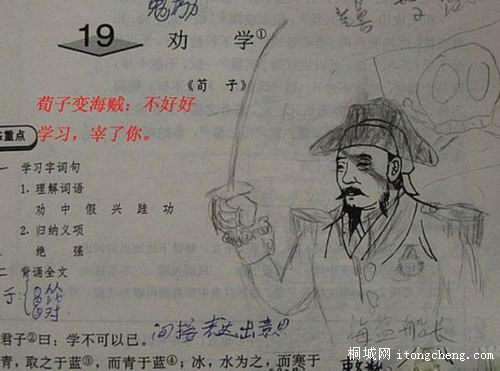 19 劝 学①
《荀 子》
荀子变海贼：不好好
学习，宰了你。
重点
学习字词句
1. 理解词语
劝 中 假 兴 跬 功
2. 归纳义项
绝 强
二 背诵全文
间接表达出意思
海盗船长
君子②曰：学不可以已。
青，取之于蓝③，而青于蓝④；冰，水为之，而寒于
桐城网 itongcheng.com